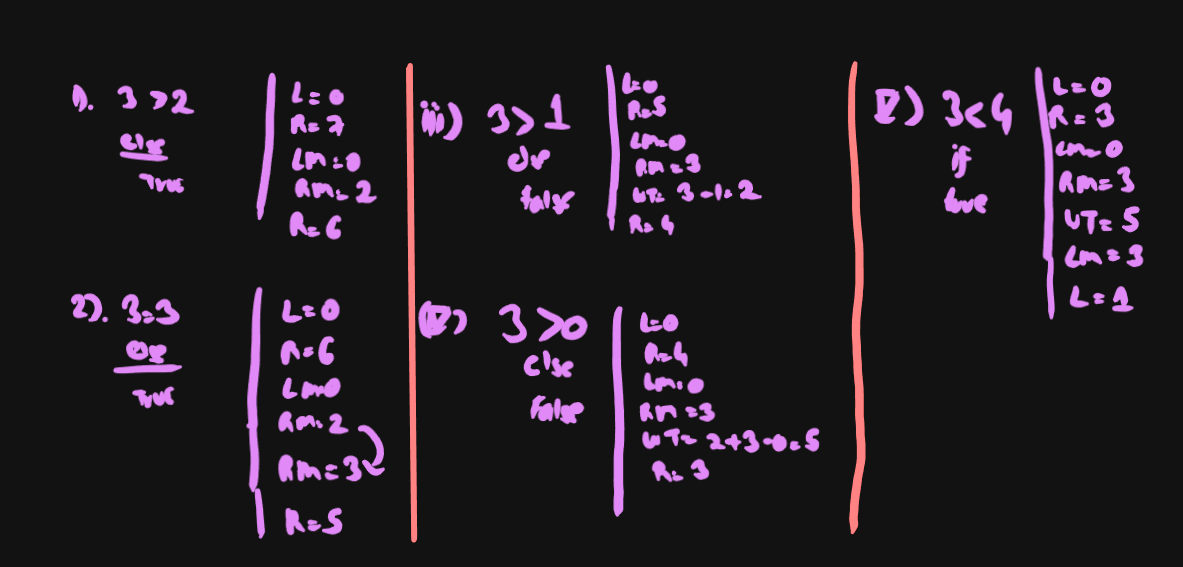 1). 3 >2
else
True
L=0
R=7
Lm=0
Rm=2
R=6
2). 3=3
else
True
L=0
R=6
Lm=0
Rm=2
Rm=3
R=5
iii) 3>1
else
false
L=0
R=5
Lm=0
Rm=3
WT= 3-1=2
R=4
IV) 3 >0
else
false
L=0
R=4
Lm=0
Rm=3
WT=2+3-0=5
R=3
V) 3<4
if
true
L=0
R=3
Lm=0
Rm=3
WT=5
Lm=3
L=1